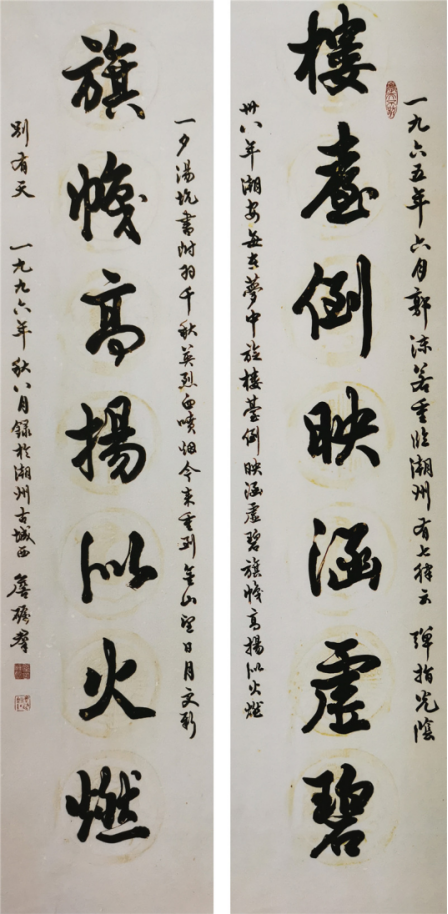 一九六五年六月郭沫若重临潮州有七律云 弹指光陰
樓臺倒映涵虛碧
卅八年潮安每在夢中旋樓臺倒映涵虛碧旗幟高揚似火燃
一夕湯坑書附羽千秋英烈血噴烟今来重到金山望日月更新
旗幟高揚似火燃
别有天 一九九六年秋八月録於潮州古城西